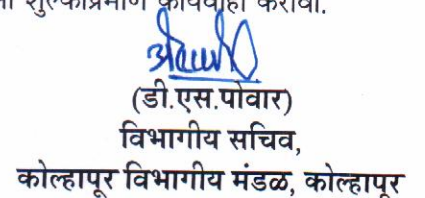 शुल्काप्रमाणे कार्यवाही करावी.
(डी.एस.पोवार)
विभागीय सचिव,
कोल्हापूर विभागीय मंडळ, कोल्हापूर